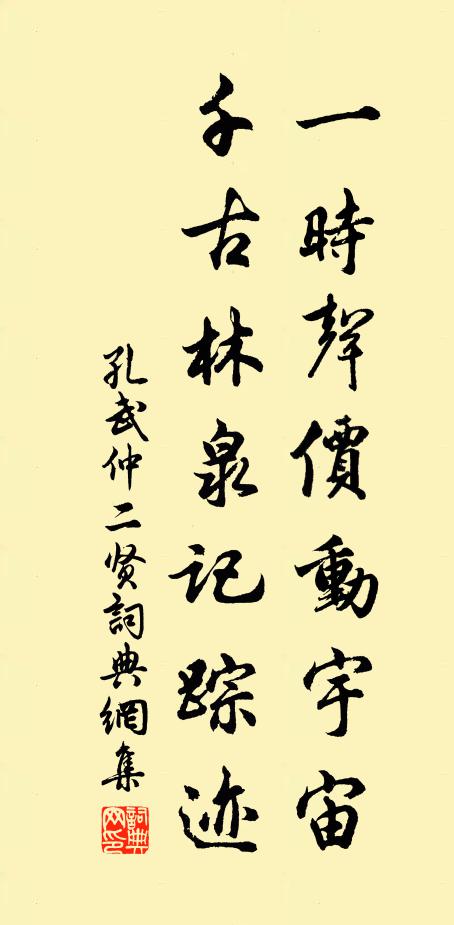 一時聲價動宇宙
千古林泉記踪迹
孔武仲二贤詞典網集
詞典网印